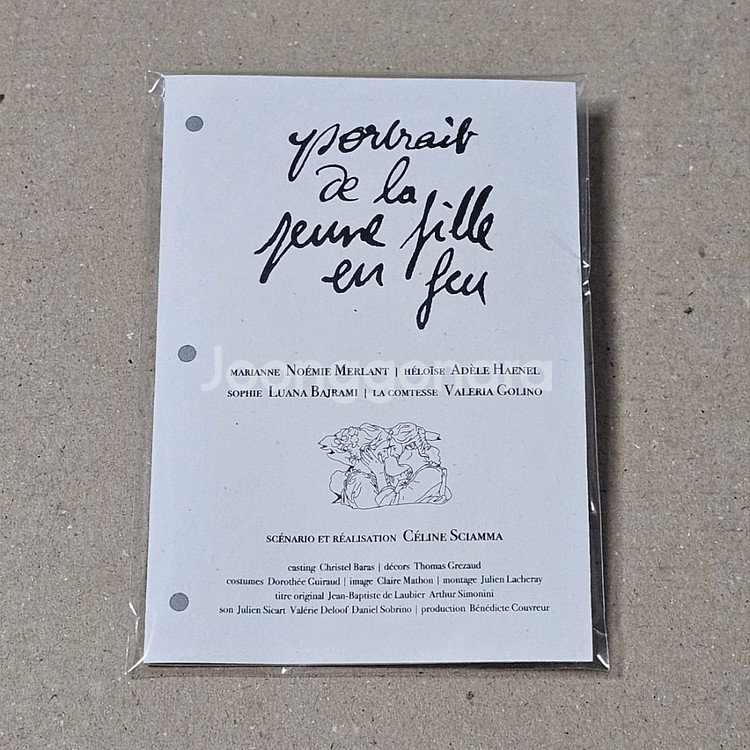 portrait
de la
jeune fille
en feu
MARIANNE NOÉMIE MERLANT | HÉLOÏSE ADÈLE HAENEL
Joonggonara
SOPHIE LUANA BAJRAMI | LA COMTESSE VALERIA GOLINO
SCÉNARIO ET RÉALISATION CÉLINE SCIAMMA
casting Christel Baras | décors Thomas Grezaud
costumes Dorothée Guiraud | image Claire Mathon | montage Julien Lacheray
titre original Jean-Baptiste de Laubier Arthur Simonini
son Julien Sicart Valérie Deloof Daniel Sobrino | production Bénédicte Couvreur